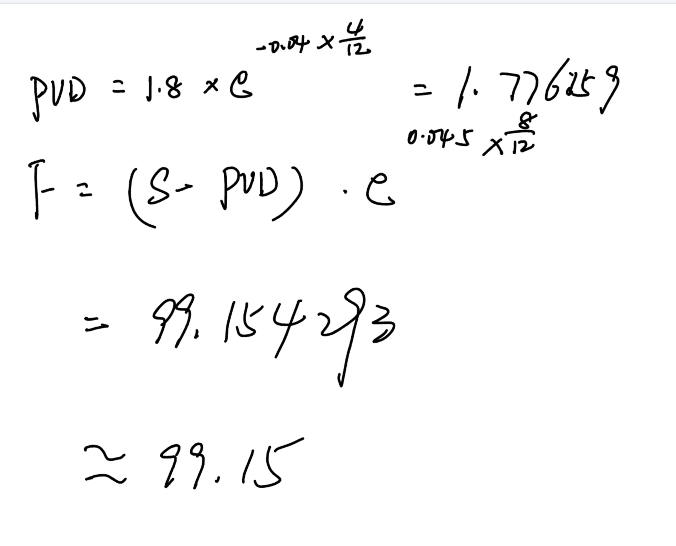 PVD = 1.8 × e^{-0.04 × 4/12} = 1.776159
F = (S - PVD) · e^{0.045 × 8/12}
= 99.154293
≈ 99.15